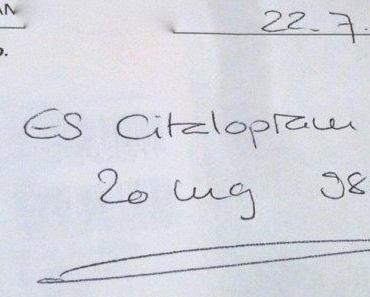 AN
22.7.
o.
ES Citaloptam
20 mg 98